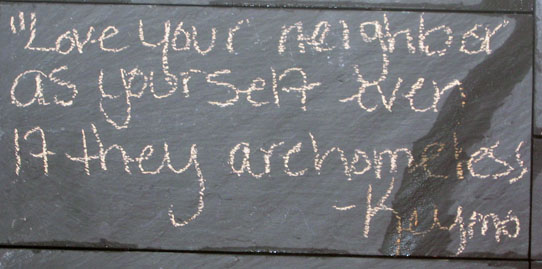 "Love your neighbor
as yourself even
If they are homeless
-Keymo